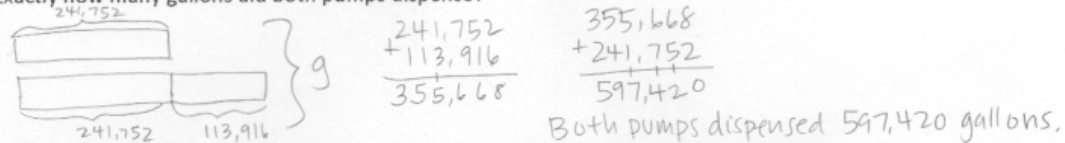 Exactly how many gallons did both pumps dispense?
241,752
g
241,752 113,916
241,752
+113,916
355,668
355,668
+241,752
597,420
Both pumps dispensed 597,420 gallons.